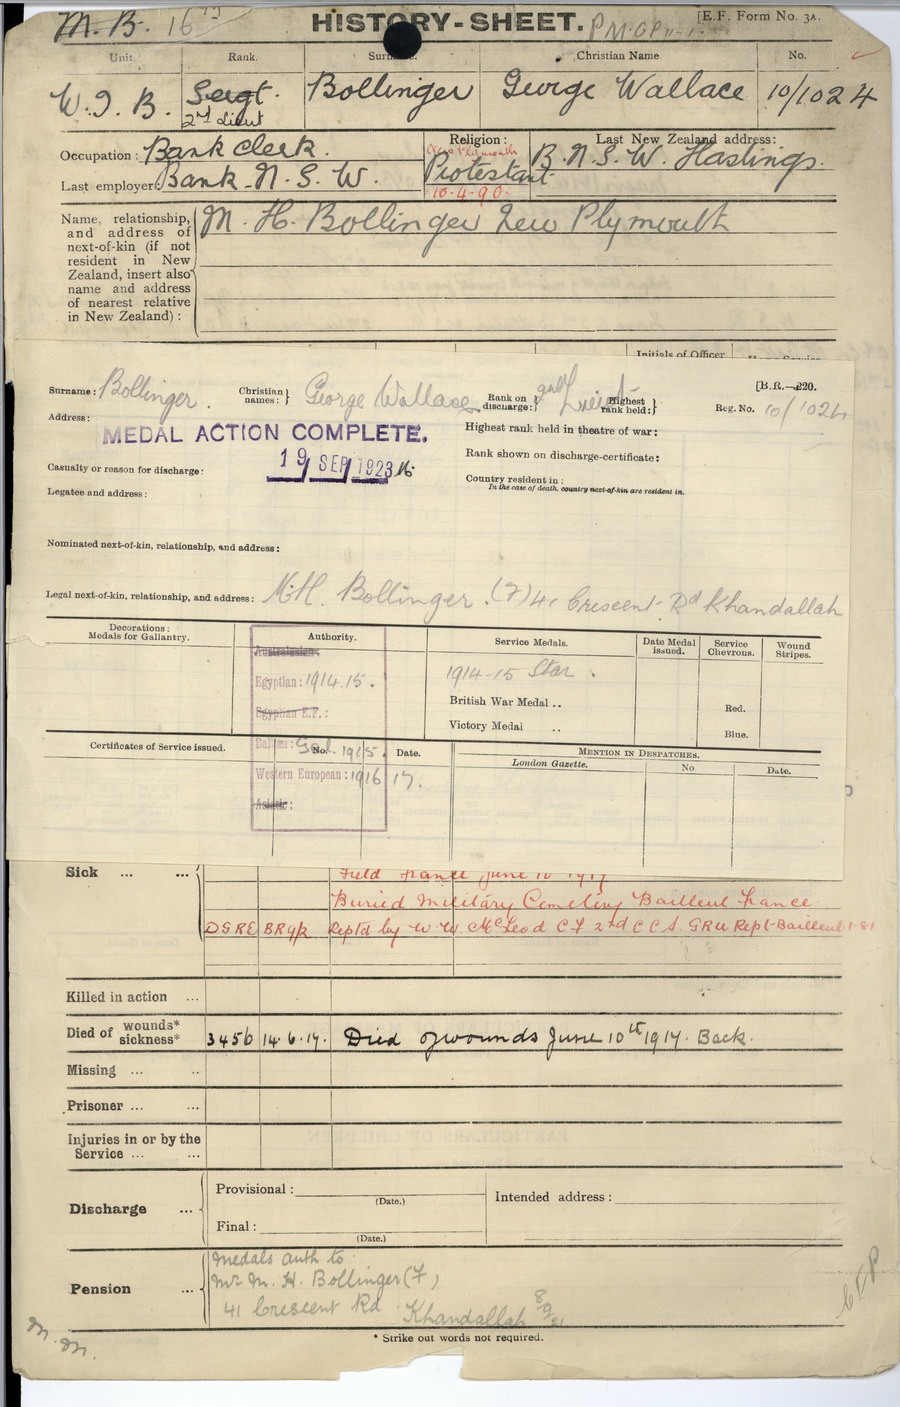 M. B. 16
HISTORY-SHEET.
[E.F. Form No. 3A.
Unit. Rank. Christian Name. No.
W.I.B. Sergt. Bollinger George Wallace 10/1024
2nd Lieut
Occupation: Bank Clerk. Religion: Last New Zealand address:
Last employer: Bank N. S. W. Protestant B. N. S. W. Hastings.
10-4-90
Name, relationship, and address of next-of-kin (if not resident in New Zealand, insert also name and address of nearest relative in New Zealand):
M. H. Bollinger New Plymouth
Initials of Officer
Surname: Bollinger. Christian names: George Wallace Rank on discharge: 2nd Lieut Highest rank held: [B.R.—220.
Reg. No. 10/1024
Address:
MEDAL ACTION COMPLETE.
Highest rank held in theatre of war:
19 SEP 1923
Rank shown on discharge-certificate:
Casualty or reason for discharge:
Country resident in:
In the case of death, country next-of-kin are resident in.
Legatee and address:
Nominated next-of-kin, relationship, and address:
Legal next-of-kin, relationship, and address: M.H. Bollinger. (F) 41 Crescent Rd Khandallah
Decorations: Authority. Service Medals. Date Medal issued. Service Chevrons. Wound Stripes.
Medals for Gallantry.
Australasian:
Egyptian: 1914.15.
1914-15 Star.
Egyptian E.F.:
British War Medal ..
Red.
Victory Medal ..
Blue.
Certificates of Service issued. No. Date.
Balkan: Gal. 1915.
MENTION IN DESPATCHES.
London Gazette. No. Date.
Western European: 1916 17.
Asiatic:
Sick ... ...
Field France June 10 1917
Buried Military Cemetery Bailleul France
DGRE BR9/2 Reptd by W. W. McLeod CF 2nd CCS. GRU Rept Bailleul
Killed in action ...
Died of wounds* sickness* 3456 14.6.17. Died of wounds June 10th 1917. Back.
Missing ... ...
Prisoner ... ...
Injuries in or by the Service ... ...
Discharge ... Provisional: (Date.) Intended address:
Final: (Date.)
Pension ...
Medals auth to
Mr M. H. Bollinger (F)
41 Crescent Rd. Khandallah 8/9/21
* Strike out words not required.
M. M.